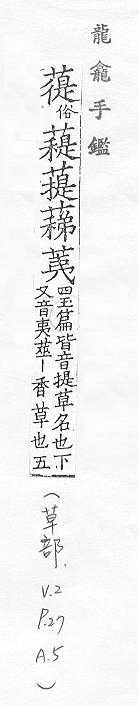 龍龕手鑑
俗蕛荑四玉篇皆音提草名也下
又音夷莁—香草也五
(草部. V.2 P.27 A.5)